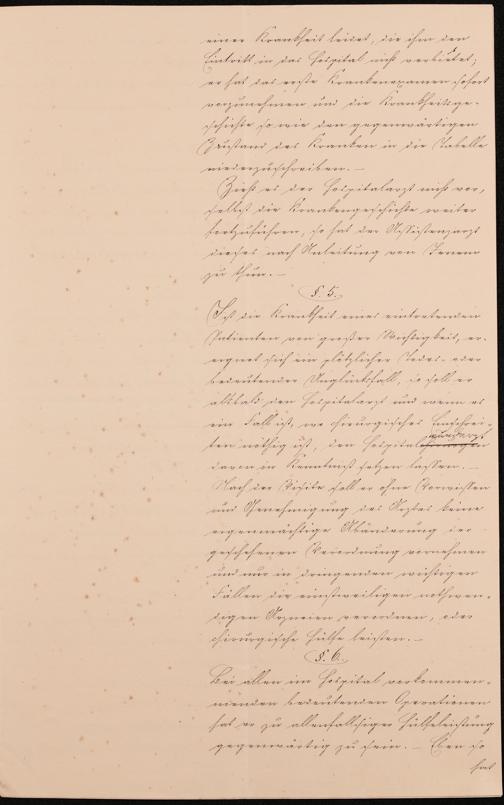 einer Krankheit leidet, die ihm den
Eintritt in das Hospital nicht verbietet;
er hat das erste Krankenexamen sofort
vorzunehmen und die Krankheitsge-
schichte so wie den gegenwärtigen
Zustand des Kranken in die Tabelle
niederzuschreiben. —
Zieht es der Hospitalarzt nicht vor,
selbst die Krankengeschichte weiter
fortzuführen, so hat der Assistenzarzt
dieses nach Anleitung von Jenem
zu thun. —
§. 5.
Ist die Krankheit eines eintretenden
Patienten von großer Wichtigkeit, er-
eignet sich ein plötzlicher Todes- oder
bedeutender Unglücksfall, so soll er
alsbald den Hospitalarzt und wenn es
ein Fall ist, wo chirurgisches Einschrei-
ten nöthig ist, den Hospitalwundarzt
davon in Kenntniß setzen lassen. —
Nach der Visite soll er ohne Vorwissen
und Genehmigung des Arztes keine
eigenmächtige Abänderung der
geschehenen Verordnung vornehmen
und nur in dringenden wichtigen
Fällen die einstweiligen nothwen-
digen Arzneien verordnen, oder
chirurgische Hülfe leisten. —
§. 6.
Bei allen im Hospital vorkommen-
menden bedeutenden Operationen
hat er zu allenfallsiger Hülfeleistung
gegenwärtig zu sein. — Eben so
hat